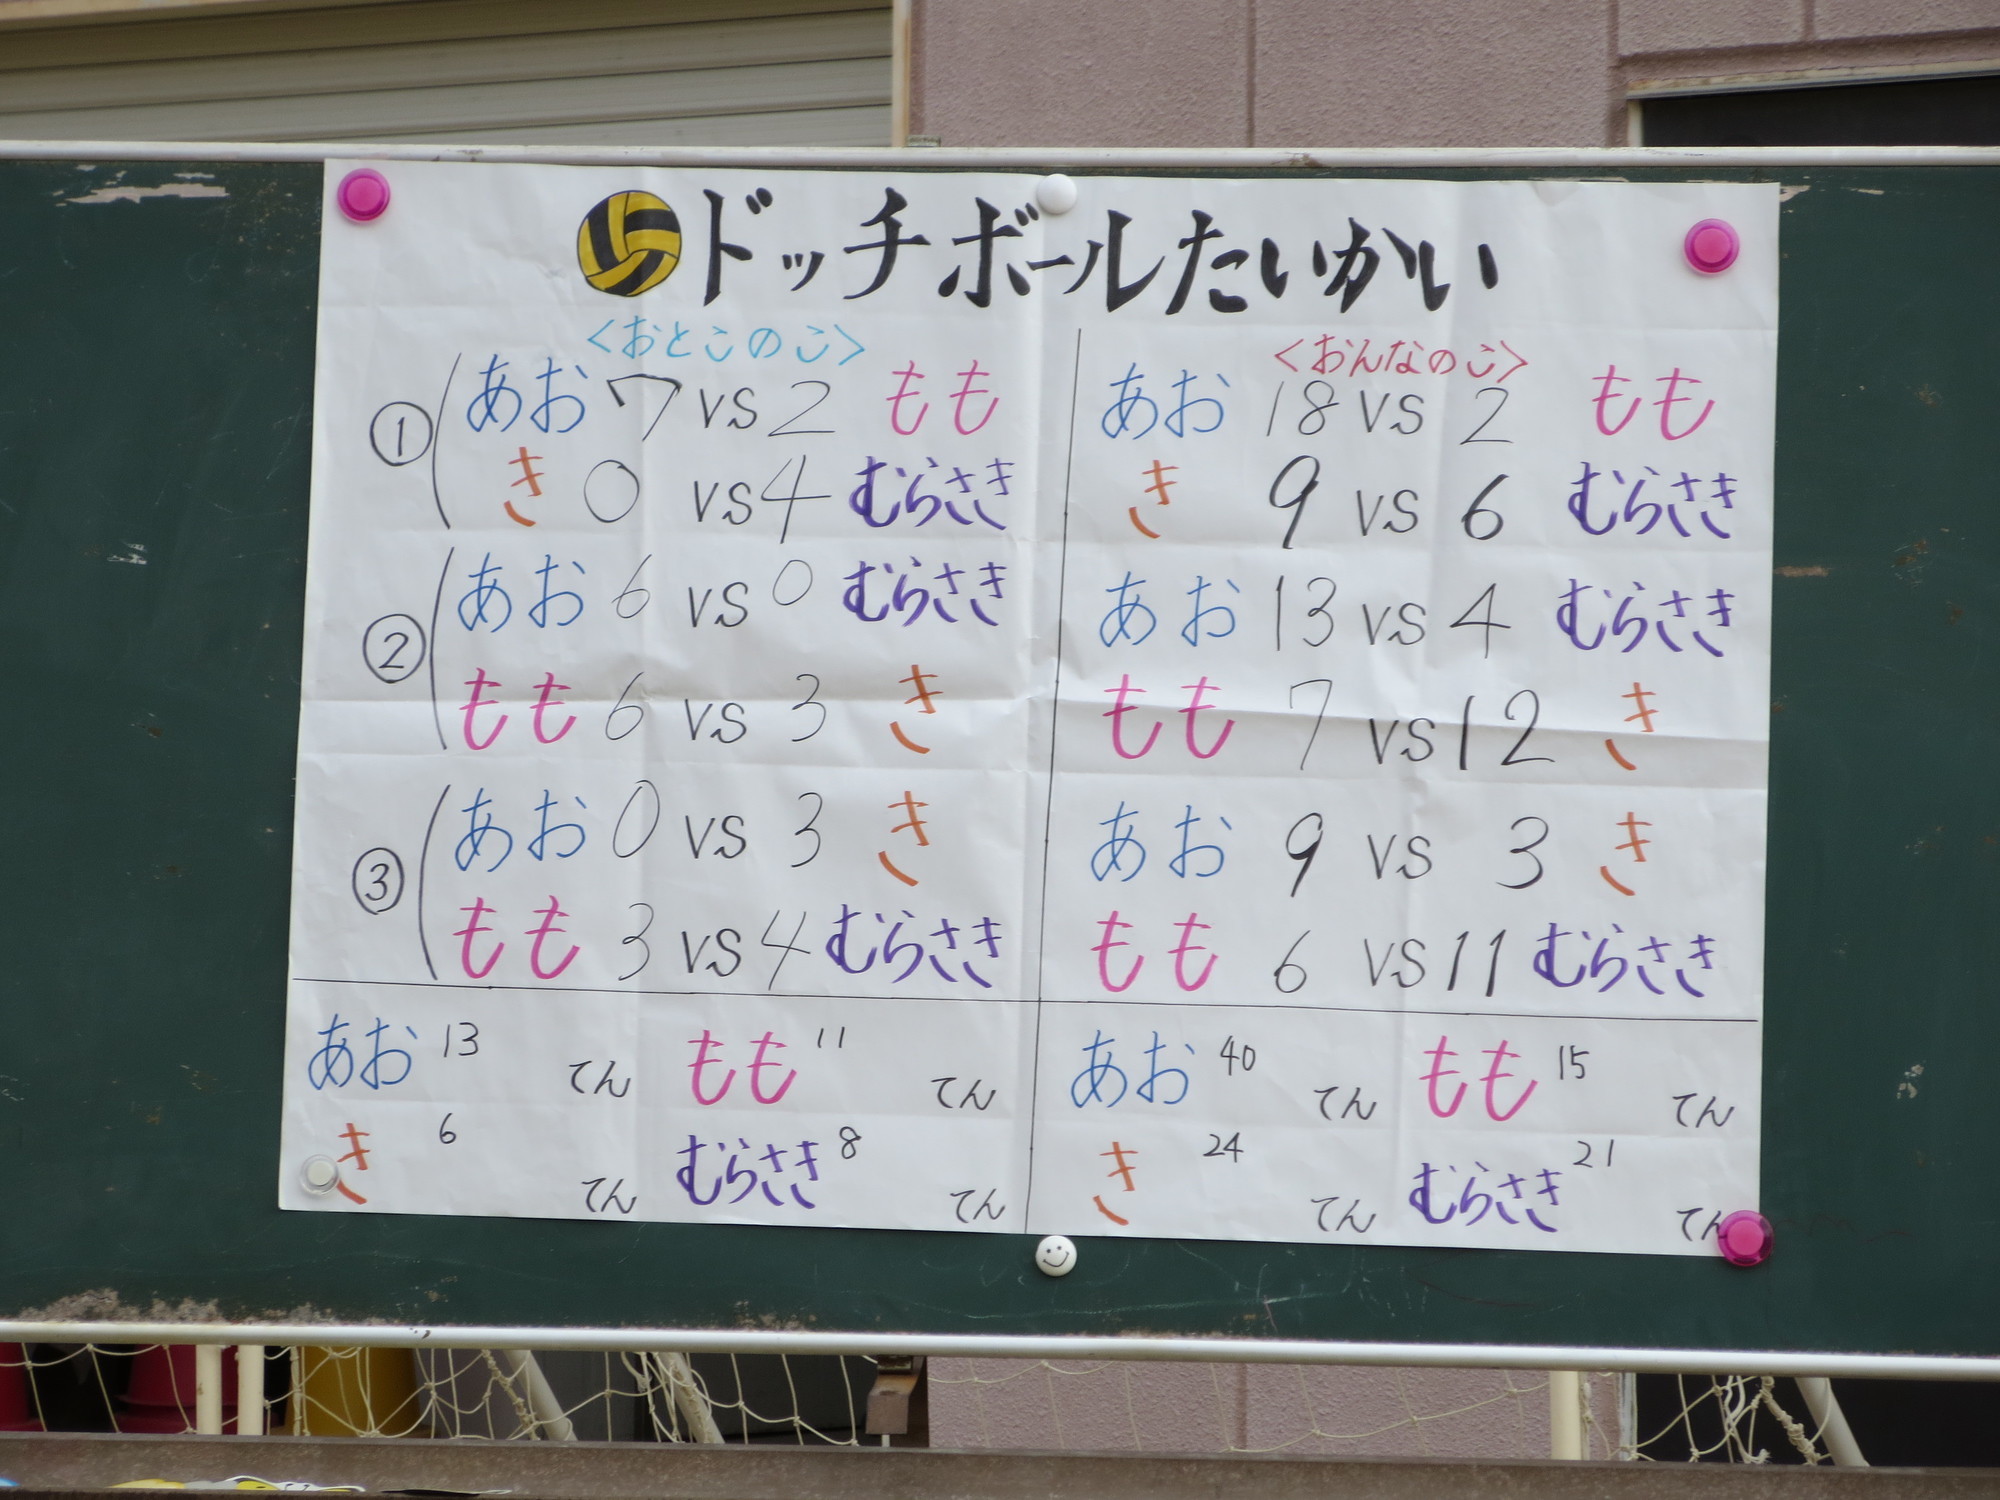 ドッチボールたいかい
<おとこのこ>
① あお 7 vs 2 もも
き 0 vs 4 むらさき
② あお 6 vs 0 むらさき
もも 6 vs 3 き
③ あお 0 vs 3 き
もも 3 vs 4 むらさき
あお 13 てん もも 11 てん
き 6 てん むらさき 8 てん
<おんなのこ>
あお 18 vs 2 もも
き 9 vs 6 むらさき
あお 13 vs 4 むらさき
もも 7 vs 12 き
あお 9 vs 3 き
もも 6 vs 11 むらさき
あお 40 てん もも 15 てん
き 24 てん むらさき 21 てん